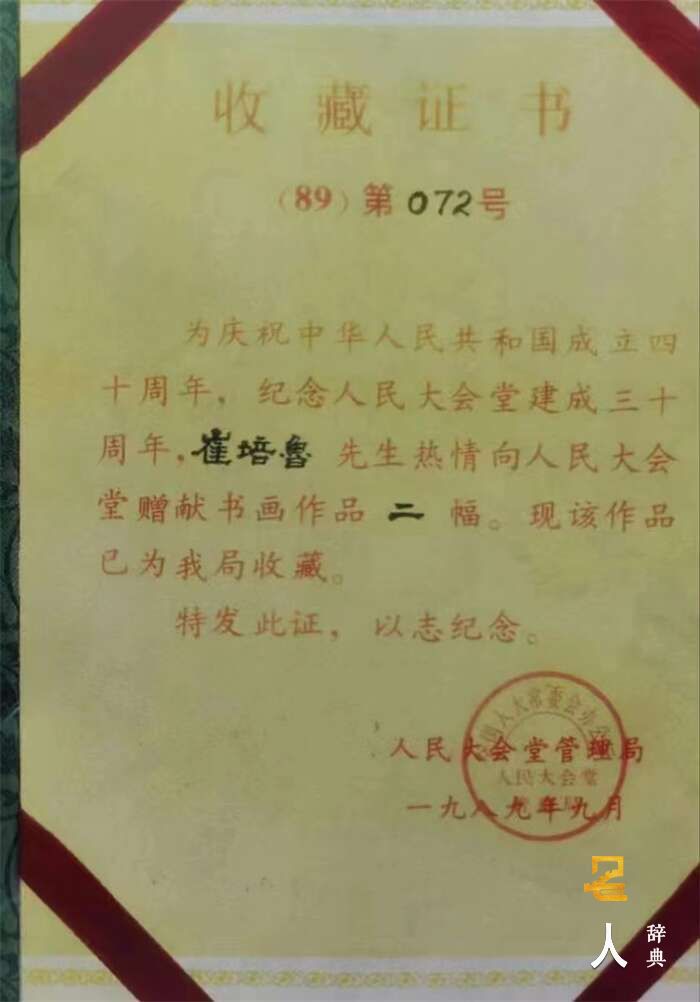 收藏证书
(89)第072号
为庆祝中华人民共和国成立四
十周年，纪念人民大会堂建成三十
周年，崔培鲁先生热情向人民大会
堂赠献书画作品二幅。现该作品
已为我局收藏。
特发此证，以志纪念。
人民大会堂管理局
一九八九年九月
人大常委会办
人民大会堂
人
辞典